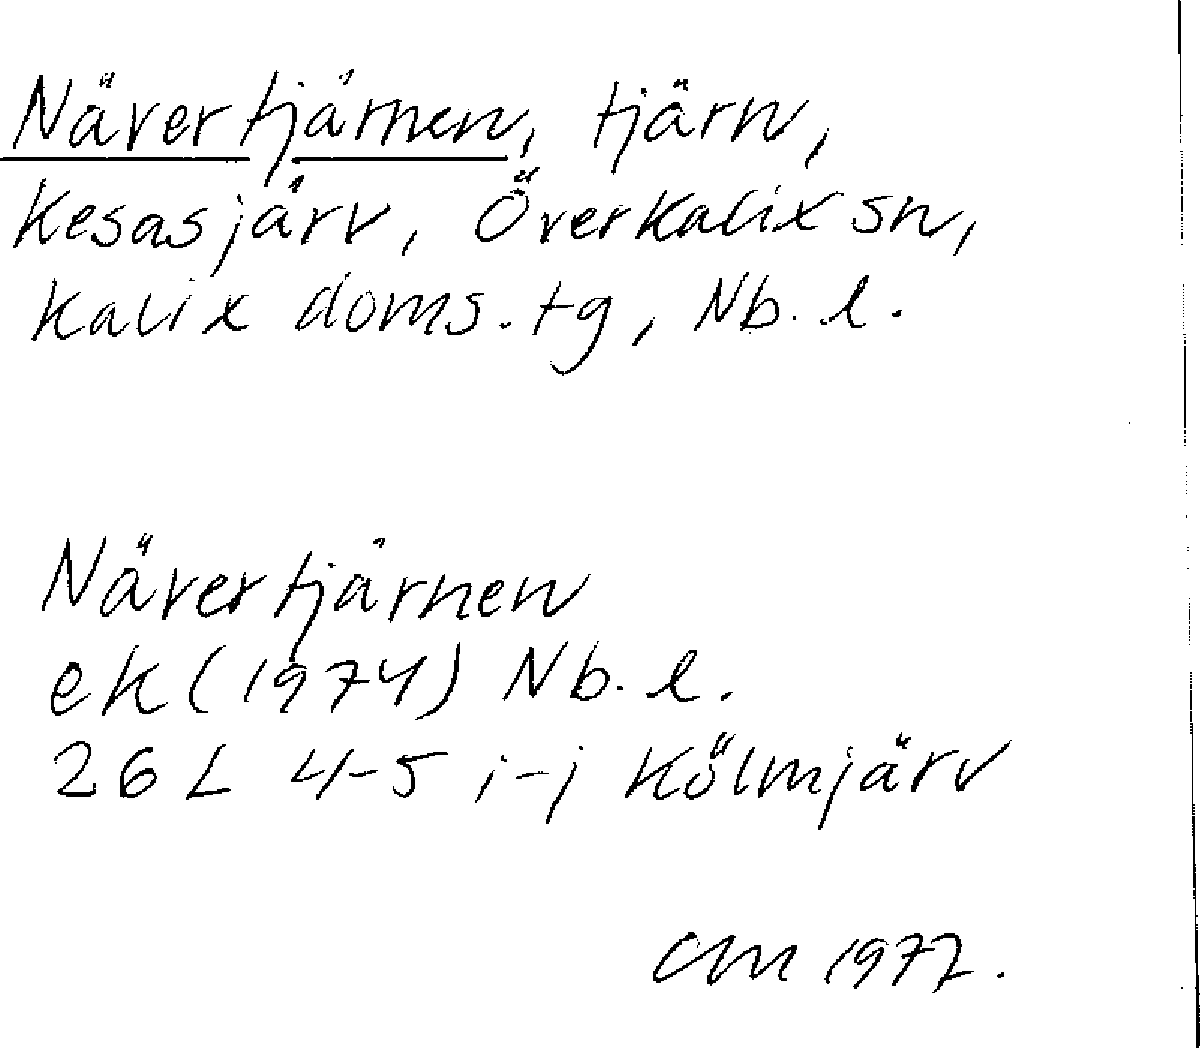 Nävertjärnen, tjärn,
Kesasjärv, Överkalix sn,
Kalix doms.tg, Nb.l.
Nävertjärnen
ek (1974) Nb.l.
26 L 4-5 i-j Kölmjärv
CM 1977.